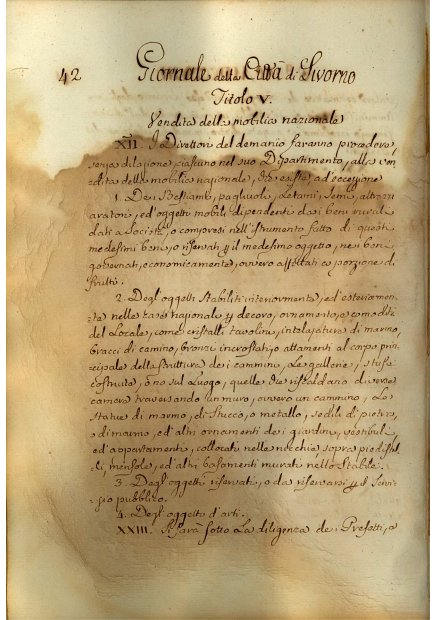 42
Giornale della Città di Livorno
Titolo V.
Vendita della mobilia nazionale
XXII. I Direttori del demanio faranno procedere,
senza dilazione ciascuno nel suo Dipartimento, alla ven
dita della mobilia nazionale, che esiste, ad eccezione
1. Dei Bestiami, pagliuoli, Letami, Semi, attrezzi
aratorj, ed oggetti mobili dipendenti dai beni rurali
dati a Società, o compresi nell'Istrumento fatto di questi
medesimi beni, o riservati p il medesimo oggetto, nei beni
governati economicamente, ovvero affittati a porzione di
frutti.
2. Degli oggetti Stabiliti interiormente, ed esteriormen-
te nelle case nazionali p decoro, ornamento, e comodità
del Locale, come cristalli, tavolini, intelajatura di marmo,
bracci di camino, bronzi incrostati, o attamenti al corpo prin-
cipale della struttura dei cammini, Le stufe
costruite, o nò sul Luogo, quelle che riscaldano diverse
camere traversando un muro, ovvero un cammino, Le
Statue di marmo, di Stucco, o metallo, sedili di pietra,
e di marmo, ed altri ornamenti dei giardini, vestiboli
ed appartamenti, collocate nelle nicchie sopra piedistal-
li, mensole, ed altri basamenti murati nello Stabile.
3. Degli oggetti riservati, o da riservarsi p il Servi-
gio pubblico.
4. Degli oggetti d'arti.
XXIII. Si farà sotto la diligenza de' Prefetti, e